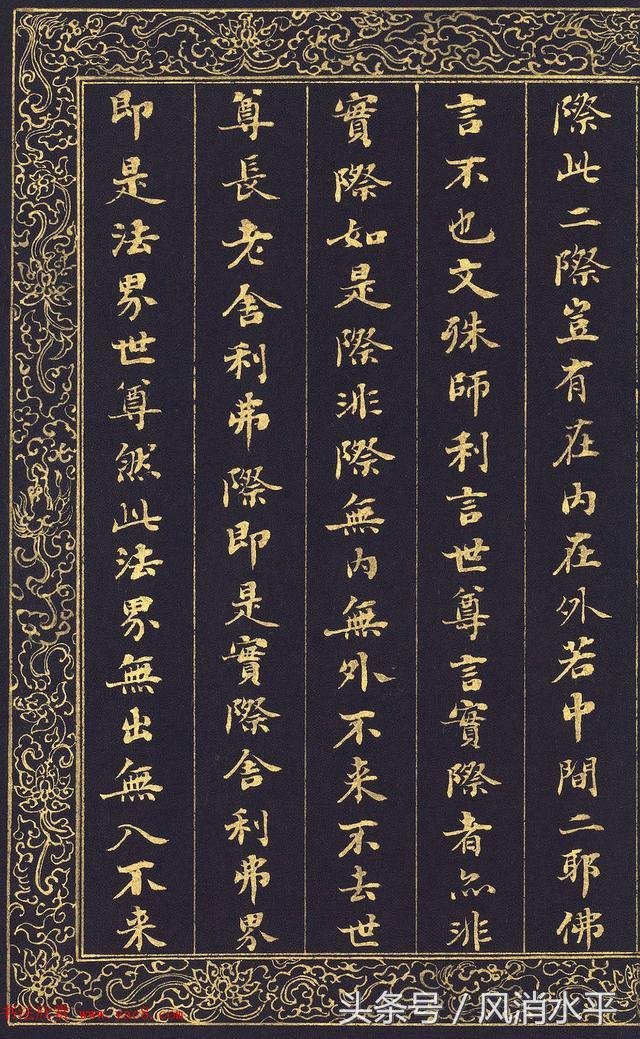 際此二際豈有在内在外若中間二耶佛
言不也文殊師利言世尊言實際者亦非
實際如是際非際無内無外不来不去世
尊長老舍利弗際即是實際舍利弗界
即是法界世尊然此法界無出無入不来
头条号 / 风消水平